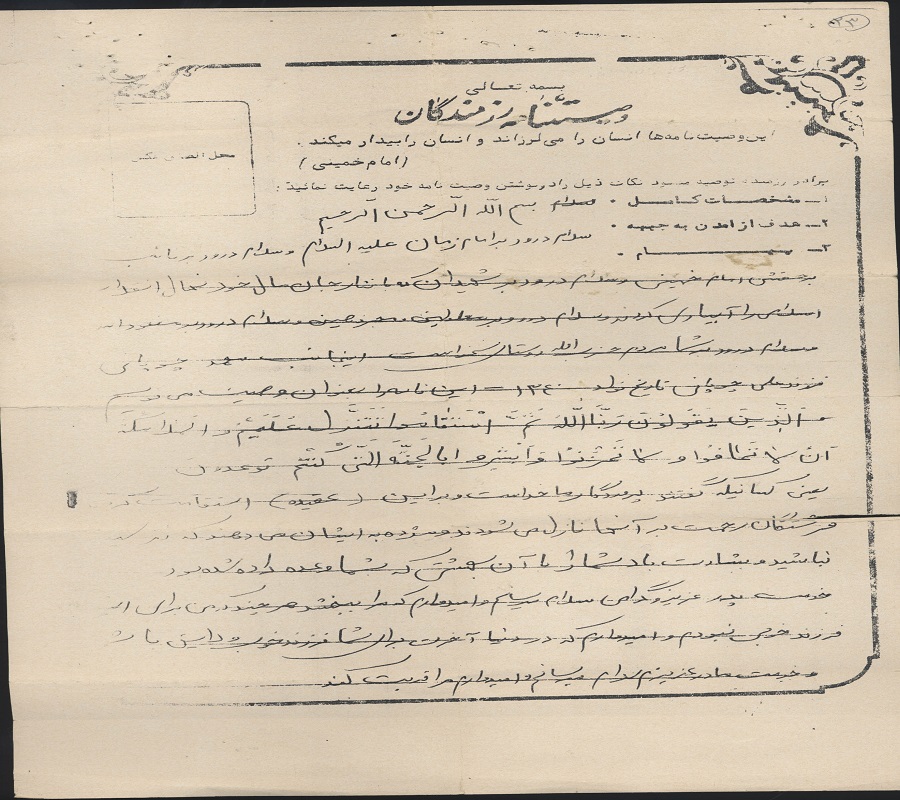 ۲۳
بسمه تعالی
وصیتنامه رزمندگان
این وصیت نامه‌ها انسان را می‌لرزاند و انسان را بیدار میکند.
(امام خمینی)
محل الصاق عکس
برادر رزمنده توصیه میشود نکات ذیل را در نوشتن وصیت نامه خود رعایت نمائید:
۱ـ مشخصات کامل. بسم الله الرحمن الرحیم
۲ـ هدف از آمدن به جبهه. سلام درود بر امام زمان علیه السلام و سلام درود بر نائب
۳ـ پیام.
بر حقش امام خمینی و سلام درود بر شهیدان که با نثار جان مال خود نهال
اسلامی را آبیاری کردند و سلام درود بر و سلام درود بر
و سلام درود بر شما مردم حزب الله اینجانب
فرزند علی چوپانی تاریخ تولد ۱۳۴۰ این نامه را بعنوان وصیت می نویسم
الذین یقولون ربنا الله ثم استقاموا تتنزل علیهم
ان لا تخافوا و لا تحزنوا و ابشروا بالجنة التی کنتم توعدون
یعنی کسانیکه گفتند پروردگار ما خداست و بر این (عقیده) استقامت
فرشتگان رحمت بر آنها نازل می شوند و مژده به ایشان می دهند که
نباشید و بشارت باد شما را با آن بهشتی که شما وعده داده شده بود
خدمت پدر عزیز و گرامی سلام میرسانم و امیدوارم که مرا ببخشد هر چند که من برای
فرزند خوبی نبودم و امیدوارم که در دنیا آخرت برای شما فرزند خوب
و خدمت مادر عزیزم سلام میرسانم و امیدوارم مرا